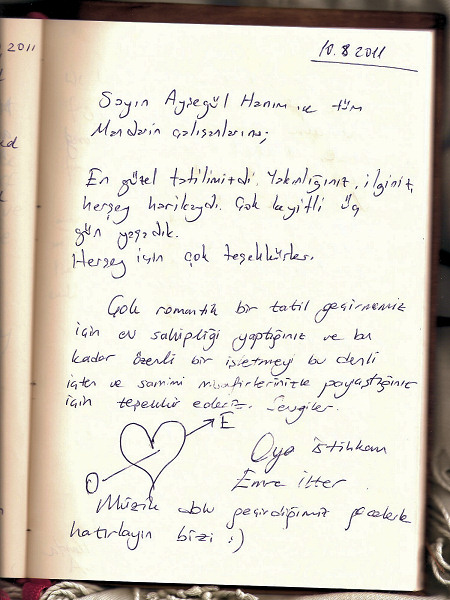 2011
10.8.2011
Sayın Ayşegül Hanım ve tüm
Mandarin çalışanlarına;
En güzel tatilimizdi. Yakınlığınız, ilginiz,
herşey harikaydı. Çok keyifli üç
gün yaşadık.
Herşey için çok teşekkürler.
Çok romantik bir tatil geçirmemiz
için ev sahipliği yaptığınız ve bu
kadar özenli bir işletmeyi bu denli
içten ve samimi misafirlerinizle paylaştığınız
için teşekkür ederiz. Sevgiler.
E
O
Oya İstihkam
Emre İlter
Müzik dolu geçirdiğimiz gecelerle
hatırlayın bizi :)